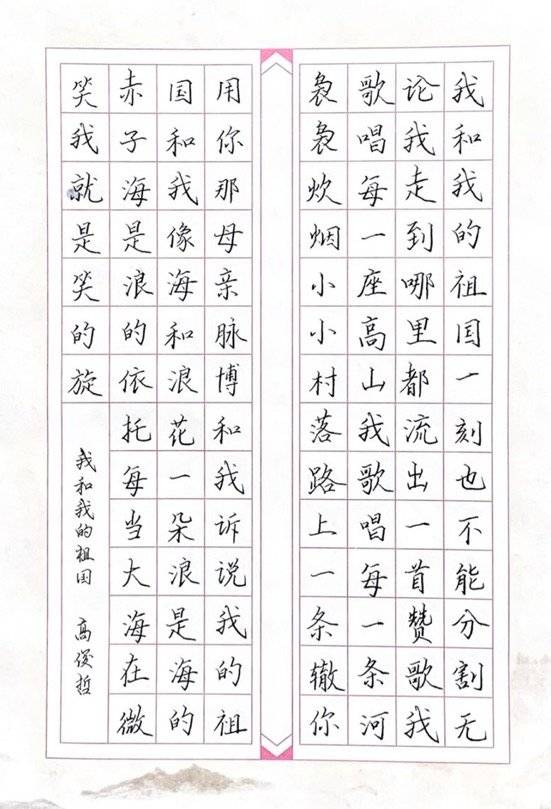 我和我的祖国一刻也不能分割无
论我走到哪里都流出一首赞歌我
歌唱每一座高山我歌唱每一条河
袅袅炊烟小小村落路上一条辙你
用你那母亲脉博和我诉说我的祖
国和我像海和浪花一朵浪是海的
赤子海是浪的依托每当大海在微
笑我就是笑的旋
我和我的祖国 高俊哲